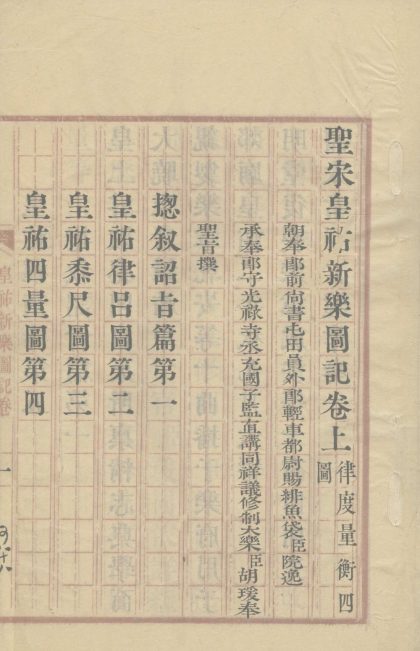 聖宋皇祐新樂圖記卷上 律度量衡四圖
朝奉郎前尚書屯田員外郎輕車都尉賜緋魚袋臣阮逸
承奉郎守光祿寺丞充國子監直講同詳議修制大樂臣胡瑗奉
聖旨撰
揔叙詔旨篇第一
皇祐律吕圖第二
皇祐黍尺圖第三
皇祐四量圖第四
皇祐新樂圖記卷
一